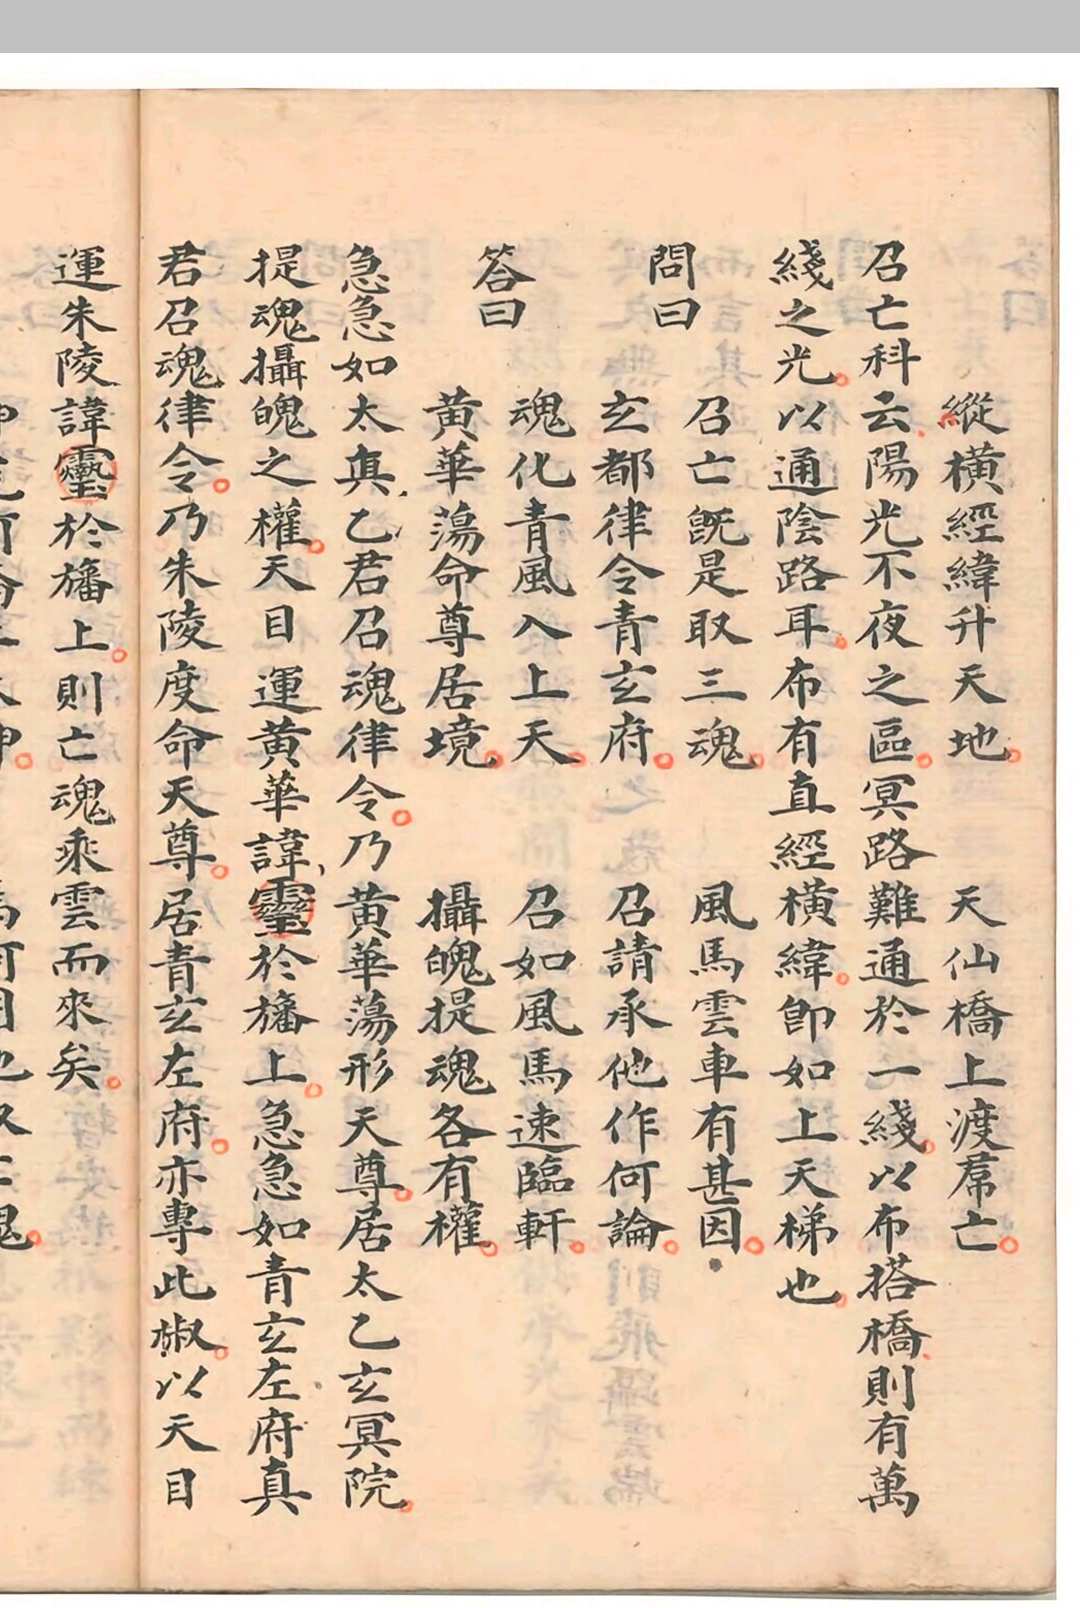 縱橫經緯升天地。　天仙橋上渡羣亡。
召亡科云、陽光不夜之區。冥路難通於一綫。以布搭橋、則有萬
綫之光。以通陰路耳。布有直經橫緯。卽如上天梯也。
問曰　召亡旣是取三魂。　風馬雲車有甚因。
玄都律令青玄府。　召請承他作何論。
答曰　魂化青風入上天。　召如風馬速臨軒。
黃華蕩命尊居境。　攝魄提魂各有權。
急急如太眞、乙君召魂律令。乃黃華蕩形天尊。居太乙玄冥院。
提魂攝魄之權。天目運黃華諱、於旛上。急急如青玄左府真
君召魂律令。乃朱陵度命天尊。居青玄左府。亦專此椒。以天目
運朱陵諱於旛上。則亡魂乘雲而來矣。